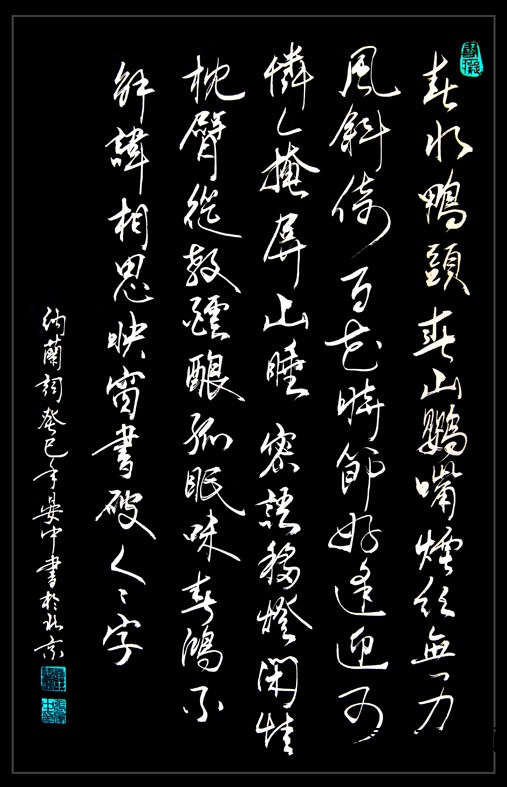 春水鴨頭春山鸚嘴煙絲無力
風斜倚百花時節好逢迎可
憐人掩屏山睡密語移燈閑情
枕臂從教醞釀孤眠味春鴻不
解諱相思映窗書破人〻字
納蘭詞癸巳年晏中書於北京